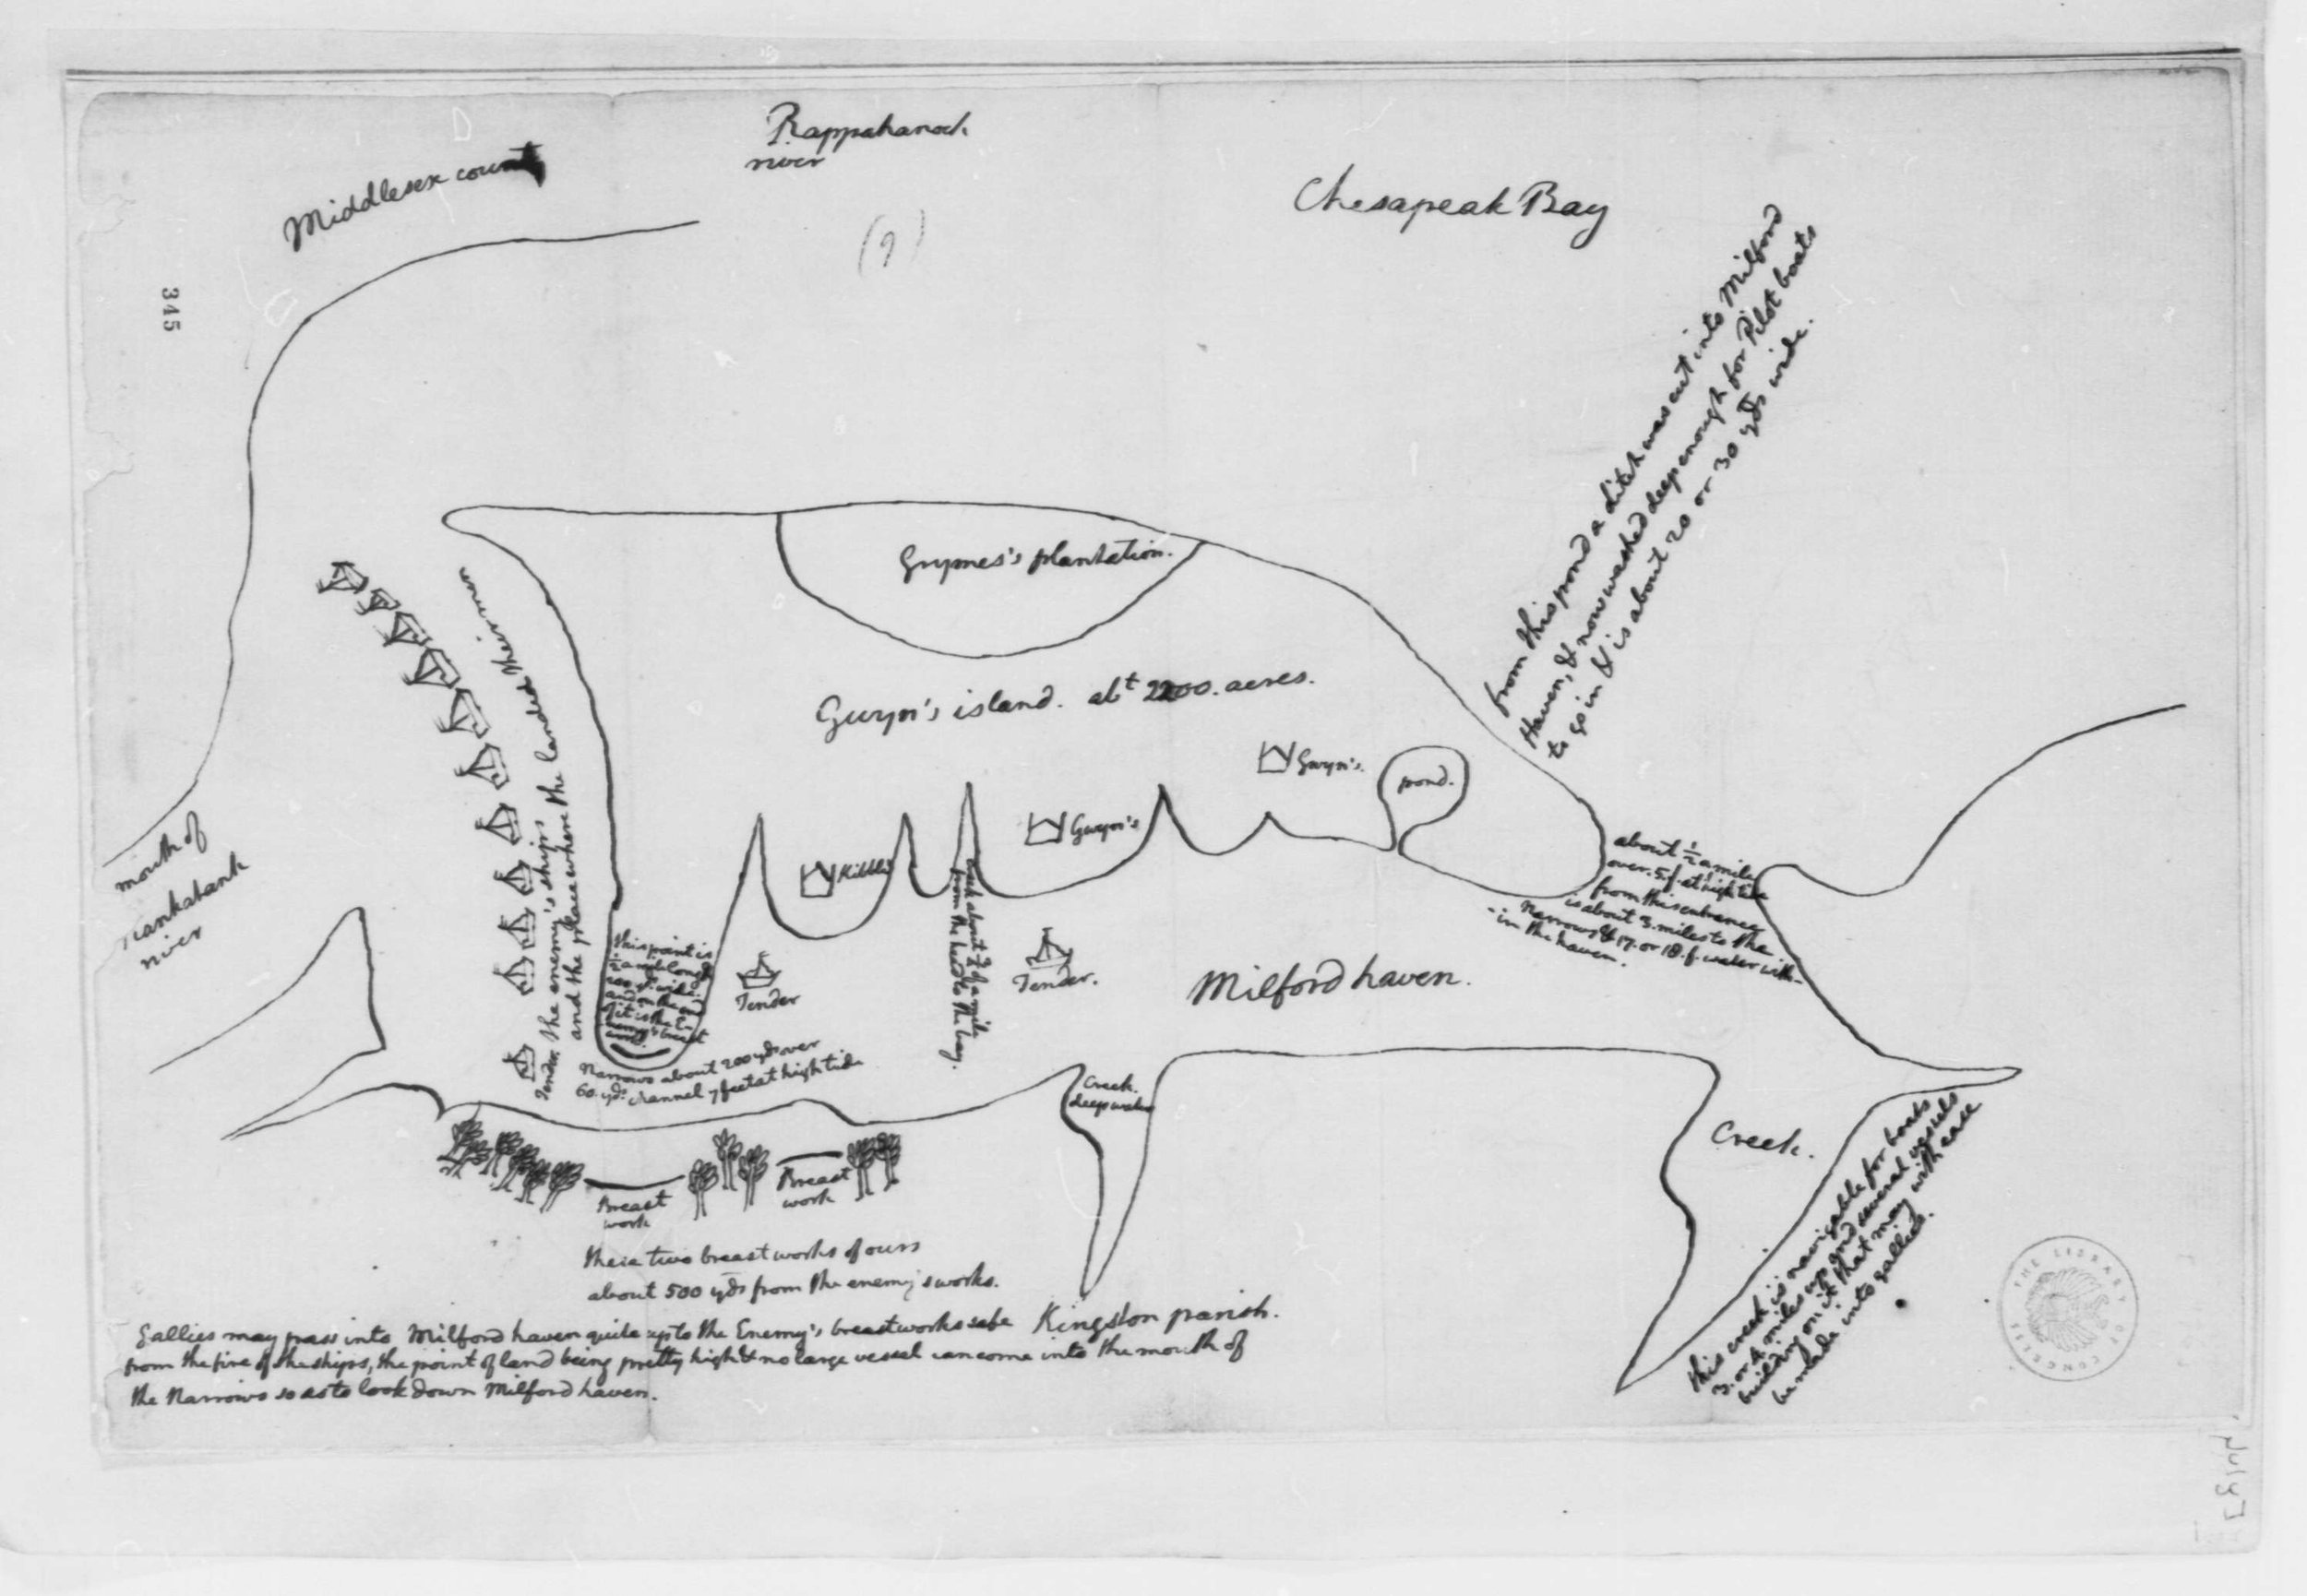 Rappahanock
river
Middlesex county
(9)
Chesapeak Bay
345
from this pond a ditch was cut into Milford
Haven, & now washed deep enough for Pilot boats
to go in & is about 20 or 30 yds wide.
Grymes's plantation.
Gwyn's island. abt 2200. acres.
Gwyn's.
pond.
Gwyn's
Kibble's
the enemy's ships
and the place where the landed their men
mouth of
Piankatank
river
about ½ a mile
over. 5.f. at high tide
from this entrance
is about 3. miles to the
Narrows & 17. or 18. f. water with-
-in the haven.
this point is
½ a mile long
200 yds wide.
and on the end
of it is the En
emy's breast
work.
creek about ¾ of a mile
from the head to the bay.
Tender
Tender.
Tender.
Milford haven.
Narrows about 200 yds over
60. yds. channel 7 feet at high tide
Creek.
deep water
Creek.
this creek is navigable for boats
3. or 4. miles up and several vessels
building on it that may with ease
be made into gallies.
Breast
work
Breast
work
these two breastworks of ours
about 500 yds from the enemy's works.
Kingston parish.
Gallies may pass into Milford haven quite up to the Enemy's breastworks safe
from the fire of the ships, the point of land being pretty high & no large vessel can come into the mouth of
the Narrows so as to look down Milford haven.
THE LIBRARY OF CONGRESS